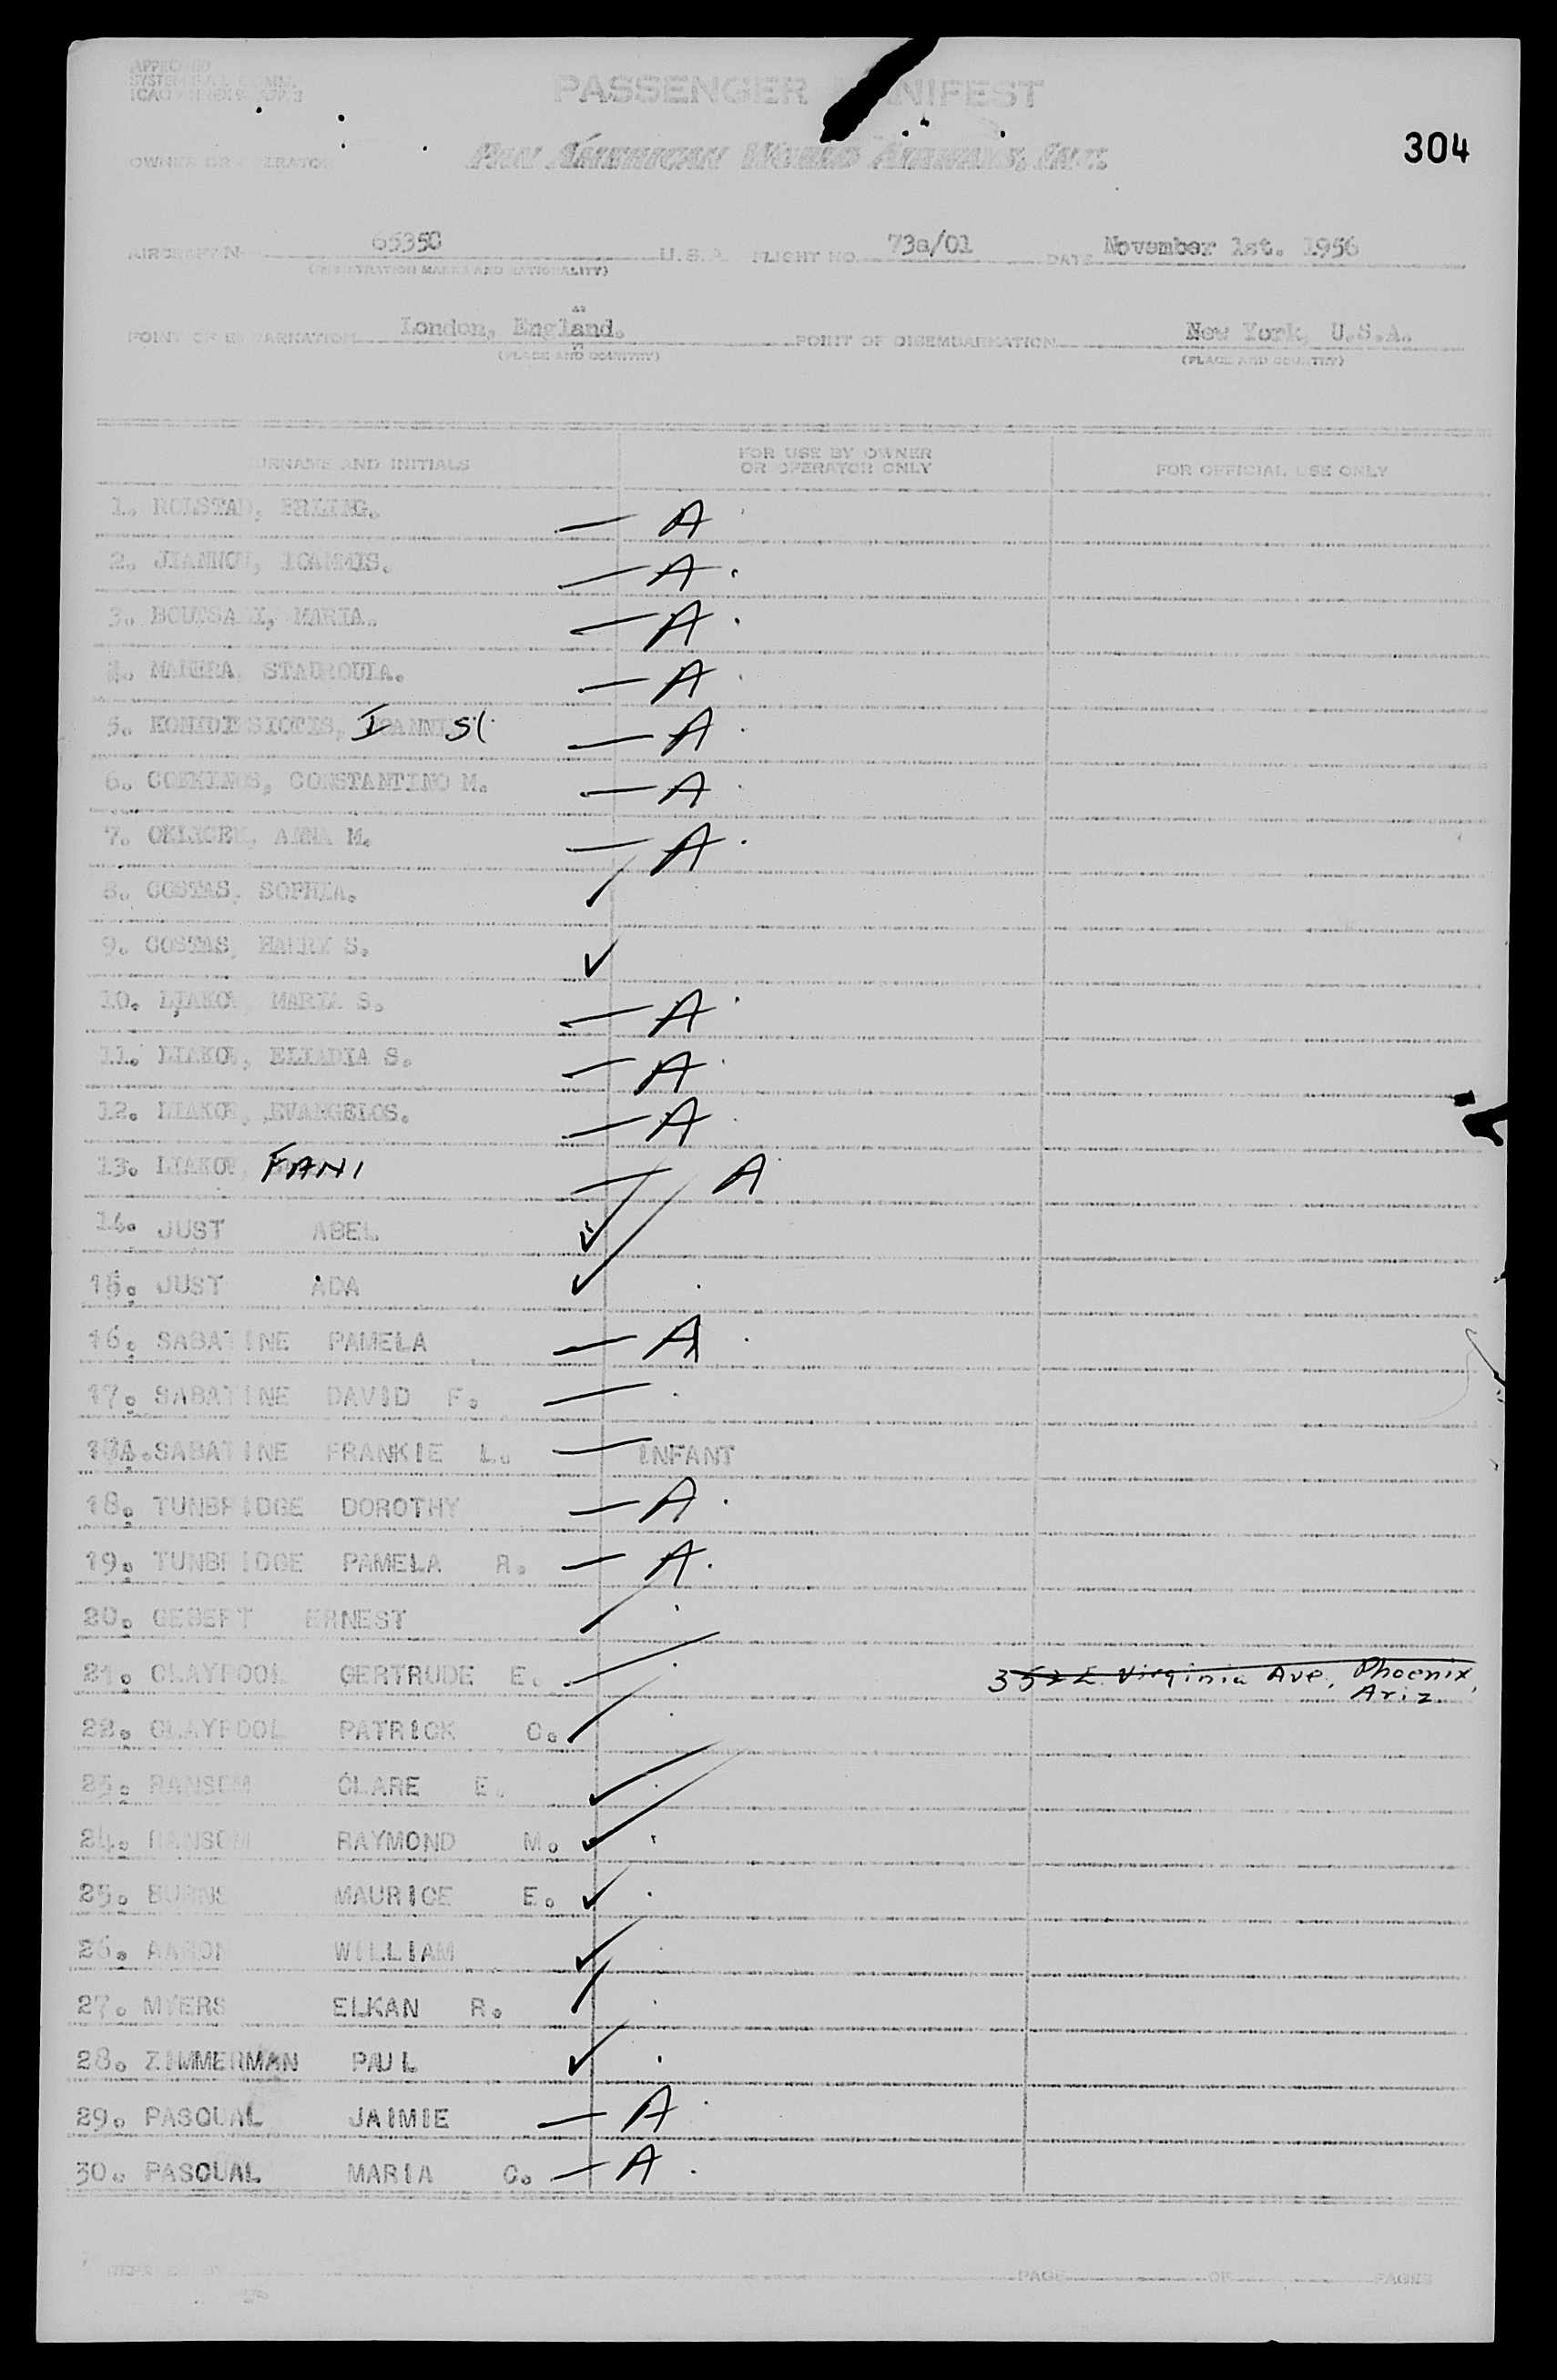 APPROVED
PASSENGER MANIFEST
OWNER OR OPERATOR PAN AMERICAN WORLD AIRWAYS, INC.
304
AIRCRAFT N 65350 U.S.A. FLIGHT NO. 73a/01 DATE November 1st. 1956
(REGISTRATION MARKS AND NATIONALITY)
POINT OF EMBARKATION London, England. POINT OF DISEMBARKATION New York, U.S.A.
(PLACE AND COUNTRY) (PLACE AND COUNTRY)
SURNAME AND INITIALS FOR USE BY OWNER OR OPERATOR ONLY FOR OFFICIAL USE ONLY
1. ROLSTAD, ERLING. — A
2. JIANNOU, IOANNIS. — A
3. MARIA. — A
4. STAUROULA. — A
5. I S — A
6. CONSTANTINO M. — A
7. ANNA M. — A
8. COSTAS, SOPHIA.
9. COSTAS, HARRY S. ✓
10. LIAKOU, MARIA S. — A
11. LIAKOU, S. — A
12. LIAKOU, EVANGELOS. — A
13. LIAKOU, FANI — A
14. JUST ABEL ✓
15. JUST ADA ✓
16. SABATINE PAMELA — A
17. SABATINE DAVID F. —
SABATINE FRANKIE L. — INFANT
18. TUNBRIDGE DOROTHY — A
19. TUNBRIDGE PAMELA R. — A
20. GEBERT ERNEST
21. CLAYPOOL GERTRUDE E. 352 E. Virginia Ave, Phoenix, Ariz.
22. CLAYPOOL PATRICK C.
23. RANSOM CLARE E. ✓
24. RANSOM RAYMOND M. ✓
25. BURNS MAURICE E. ✓
26. AARON WILLIAM ✓
27. MYERS ELKAN R.
28. ZIMMERMAN PAUL ✓
29. PASQUAL JAIMIE — A
30. PASQUAL MARIA C. — A
PAGE OF PAGES